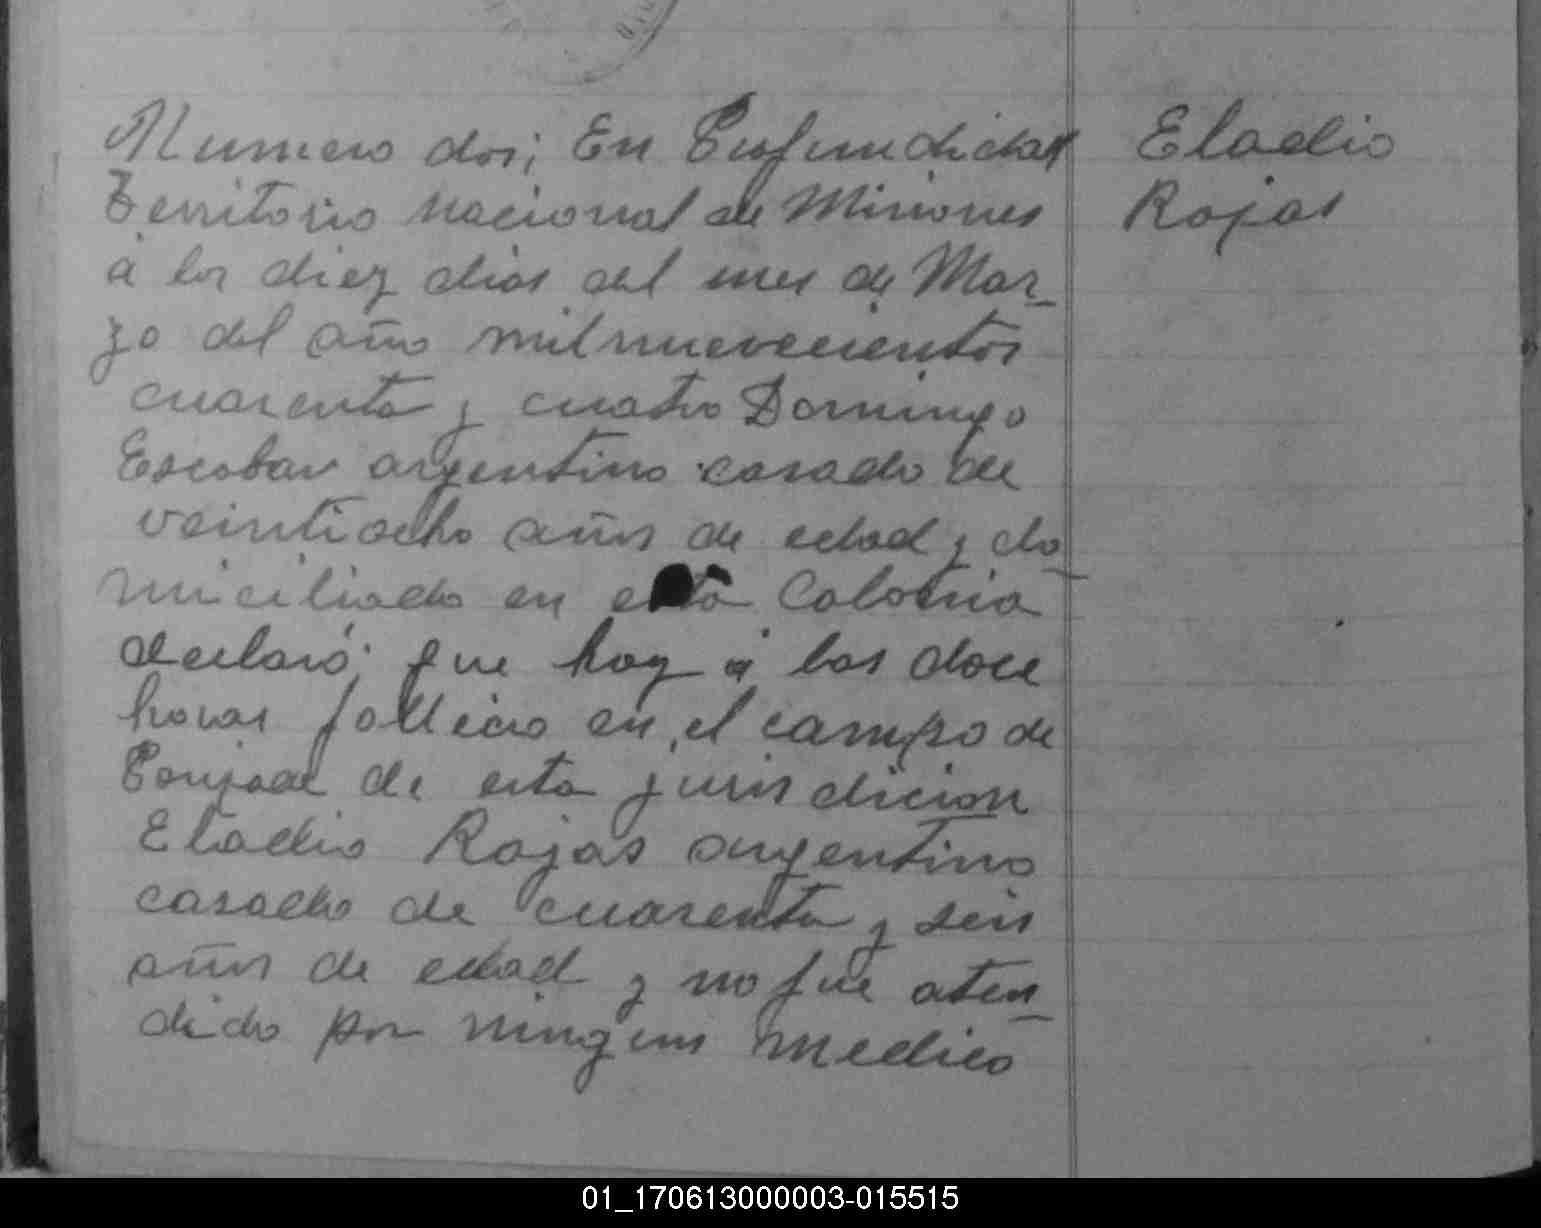 Numero dos; En Profundidad
Territorio Nacional de Misiones
á los diez dias del mes de Mar_
zo del año mil nuevecientos
cuarenta y cuatro Domingo
Escobar argentino casado de
veintiocho años de edad y do_
miciliado en esta Colonia
declaró; que hoy á las doce
horas fallecio en el campo de
de esta jurisdicion
Eladio Rojas argentino
casado de cuarenta y seis
años de edad y no fue aten_
dido por ningun medico
Eladio
Rojas
01_170613000003-015515